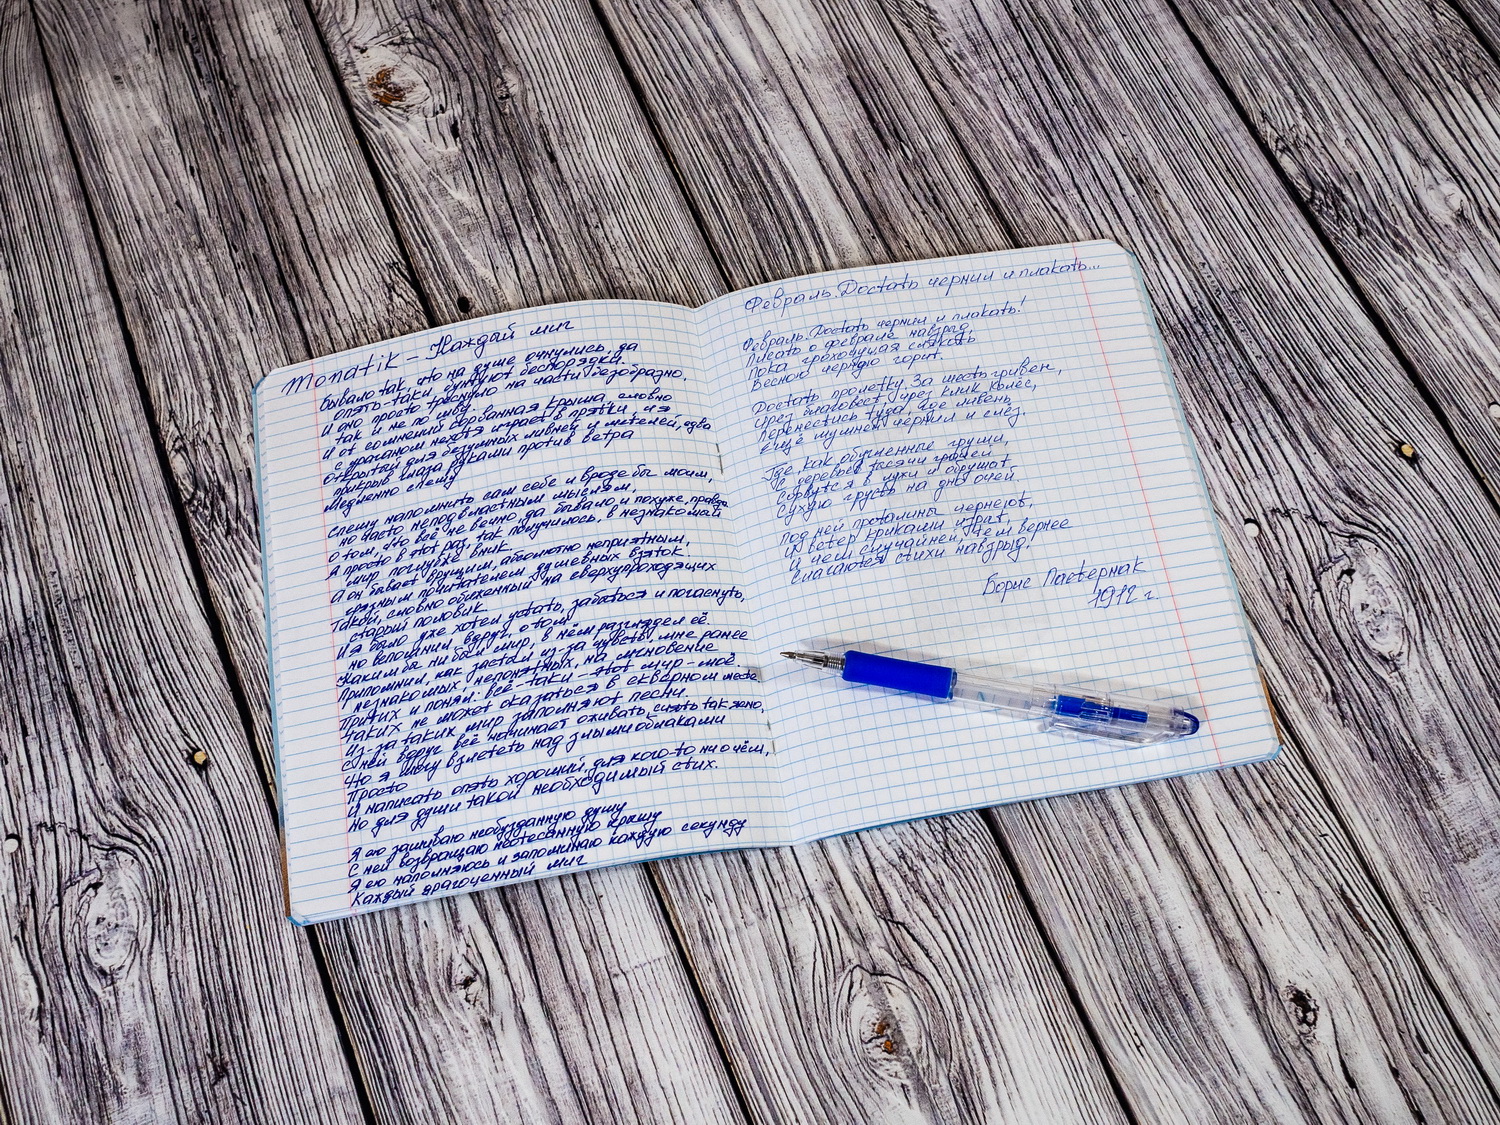 Monatik – Каждый миг
Бывало так, что на душе очнулись, да
опять-таки, бунтуют беспорядки.
И оно просто треснуло на части безобразно,
так и не по шву.
И от сомнений сорванная крыша, словно
с ураганом нехотя играет в прятки, и я
Открытый для безумных ливней и метелей, едва
прикрыв глаза руками против ветра
Медленно спешу
Спешу напомнить сам себе и вроде бы моим,
но часто неподвластным мыслям,
О том, что всё не вечно, да бывало и похуже, правда
А просто в этот раз, так получилось, в незнакомый
мир поглубже вник.
А он бывает врущим, абсолютно неприятным,
грязным почитателем душевных взяток.
Такой, словно обиженный на сверхупроходящих
старый половик.
И я было уже хотел устать, забаться и погаснуть,
но вспомнил вдруг, о том
Каким бы ни был мир, в нём разглядел её.
Припомнил, как застыл из-за чувств, мне ранее
незнакомых, непонятных, на мгновение
Притих и понял: всё-таки – этот мир – моё.
Таких не может оказаться в скверном месте
Из-за таких мир заполняют песни.
С ней вдруг всё начинает оживать, сиять так ясно,
Что я могу взлететь над злыми облаками
Просто
И написать опять хороший, для кого-то ни о чём,
Но для души такой необходимый стих.
Я ею зашиваю необузданную душу
С ней возвращаю неотесанную крышу
Я ею наполняюсь и запоминаю каждую секунду
Каждый драгоценный миг
Февраль. Достать чернил и плакать...
Февраль. Достать чернил и плакать!
Писать о феврале навзрыд,
Пока грохочущая слякоть
Весною черною горит.
Достать пролетку. За шесть гривен,
Чрез благовест, чрез клик колёс,
Перенестись туда, где ливень
Ещё шумней чернил и слёз.
Где, как обугленные груши,
С деревьев тысячи грачей
Сорвутся в лужи и обрушат
Сухую грусть на дно очей.
Под ней проталины чернеют,
И ветер криками изрыт,
И чем случайней, тем вернее
Слагаются стихи навзрыд.
Борис Пастернак
1912 г.